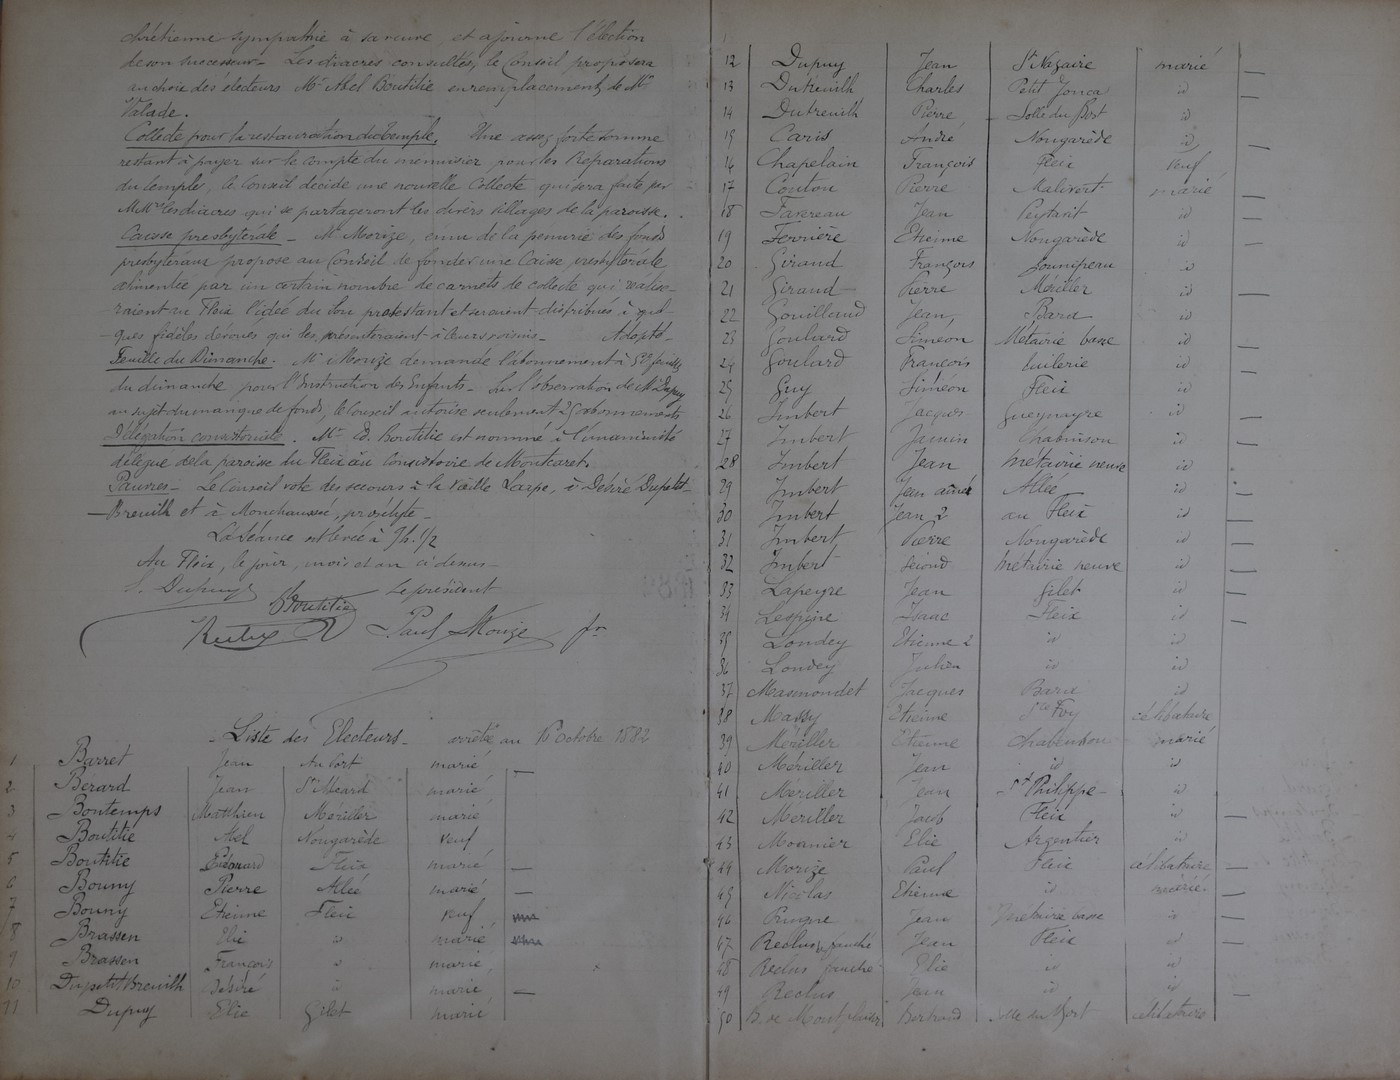 chrétienne sympathie à sa veuve, et ajourne l'élection
de son successeur. Les diacres consultés, le Conseil proposera
au choix des électeurs Mr Abel Boutitie en remplacement de Mr
Valade.
Collecte pour la restauration du Temple. Une assez forte somme
restant à payer sur le compte du menuisier pour les Réparations
du temple, le Conseil décide une nouvelle Collecte qui sera faite par
MMrs les diacres qui se partageront les divers villages de la paroisse.
Caisse presbytérale _ Mr Morize, ému de la pénurie des fonds
presbytéraux propose au Conseil de fonder une Caisse presbytérale
alimentée par un certain nombre de carnets de collecte qui réalise-
raient au Fleix l'idée du Sou protestant et seraient distribués à quel-
ques fidèles dévoués qui les présenteraient à leurs voisins _ Adopté _
Feuille du Dimanche. Mr Morize demande l'abonnement à 50 feuilles
du dimanche pour l'Instruction des Enfants _ Sur l'observation de Mr Dupuy
au sujet du manque de fonds, le Conseil autorise seulement 25 abonnements
Délégation consistoriale. Mr Ed. Boutitie est nommé à l'unanimité
délégué de la paroisse du Fleix au Consistoire de Montcaret.
Pauvres _ Le Conseil vote des secours à la Vieille Larpe, à Désiré Dupetit-
Breuilh et à Monchaussé, prosélyte _
La Séance est levée à 9 h. 1/2
Au Fleix, le jour, mois et an ci-dessus _
S. Dupuy Boutitie Le président
Reclus Paul Morize
Liste des Electeurs _ arrêtée au 16 Octobre 1882
1 Barret Jean Au Port marié
2 Bérard Jean St Méard marié
3 Bontemps Matthieu Mériller marié
4 Boutitie Abel Nougarède veuf
5 Boutitie Edouard Fleix marié
6 Bouny Pierre Allée marié
7 Bouny Etienne Fleix veuf
8 Brassen Elie id marié
9 Brassen François id marié
10 Dupetit Breuilh Désiré id marié
11 Dupuy Elie Gilet marié
12 Dupuy Jean St Nazaire marié
13 Dutreuilh Charles Petit Jonca id
14 Dutreuilh Pierre Solle du Bost id
15 Caris André Nougarède id
16 Chapelain François Fleix Veuf
17 Couton Pierre Malivert marié
18 Favereau Jean id
19 Ferrière Etienne Nougarède id
20 Giraud François id
21 Giraud Pierre Mériller id
22 Gouillaud Jean Bara id
23 Goulard Siméon Métairie basse id
24 Goulard François tuilerie id
25 Guy Siméon Fleix id
26 Imbert Jacques Gueynayre id
27 Imbert Jamin Chabinson id
28 Imbert Jean Métairie neuve id
29 Imbert Jean aîné Allée id
30 Imbert Jean 2 au Fleix id
31 Imbert Pierre Nougarède id
32 Imbert Second Métairie neuve id
33 Lapeyre Jean Gilet id
34 Lespine Isaac Fleix id
35 Londey Etienne 2 id id
36 Londey Julien id id
37 Masmondet Jacques Bara id
38 Massy Etienne Ste Foy célibataire
39 Mériller Etienne marié
40 Mériller Jean id id
41 Mériller Jean St Philippe id
42 Mériller Jacob Fleix id
43 Moanier Elie Argentier id
44 Morize Paul Fleix célibataire
45 Nicolas Etienne id marié
46 Jean Métairie basse id
47 Reclus gauché Jean Fleix id
48 Reclus gauché Elie id id
49 Reclus Jean id id
50 B. de Montplaisir Bertrand Solle du Bost célibataire